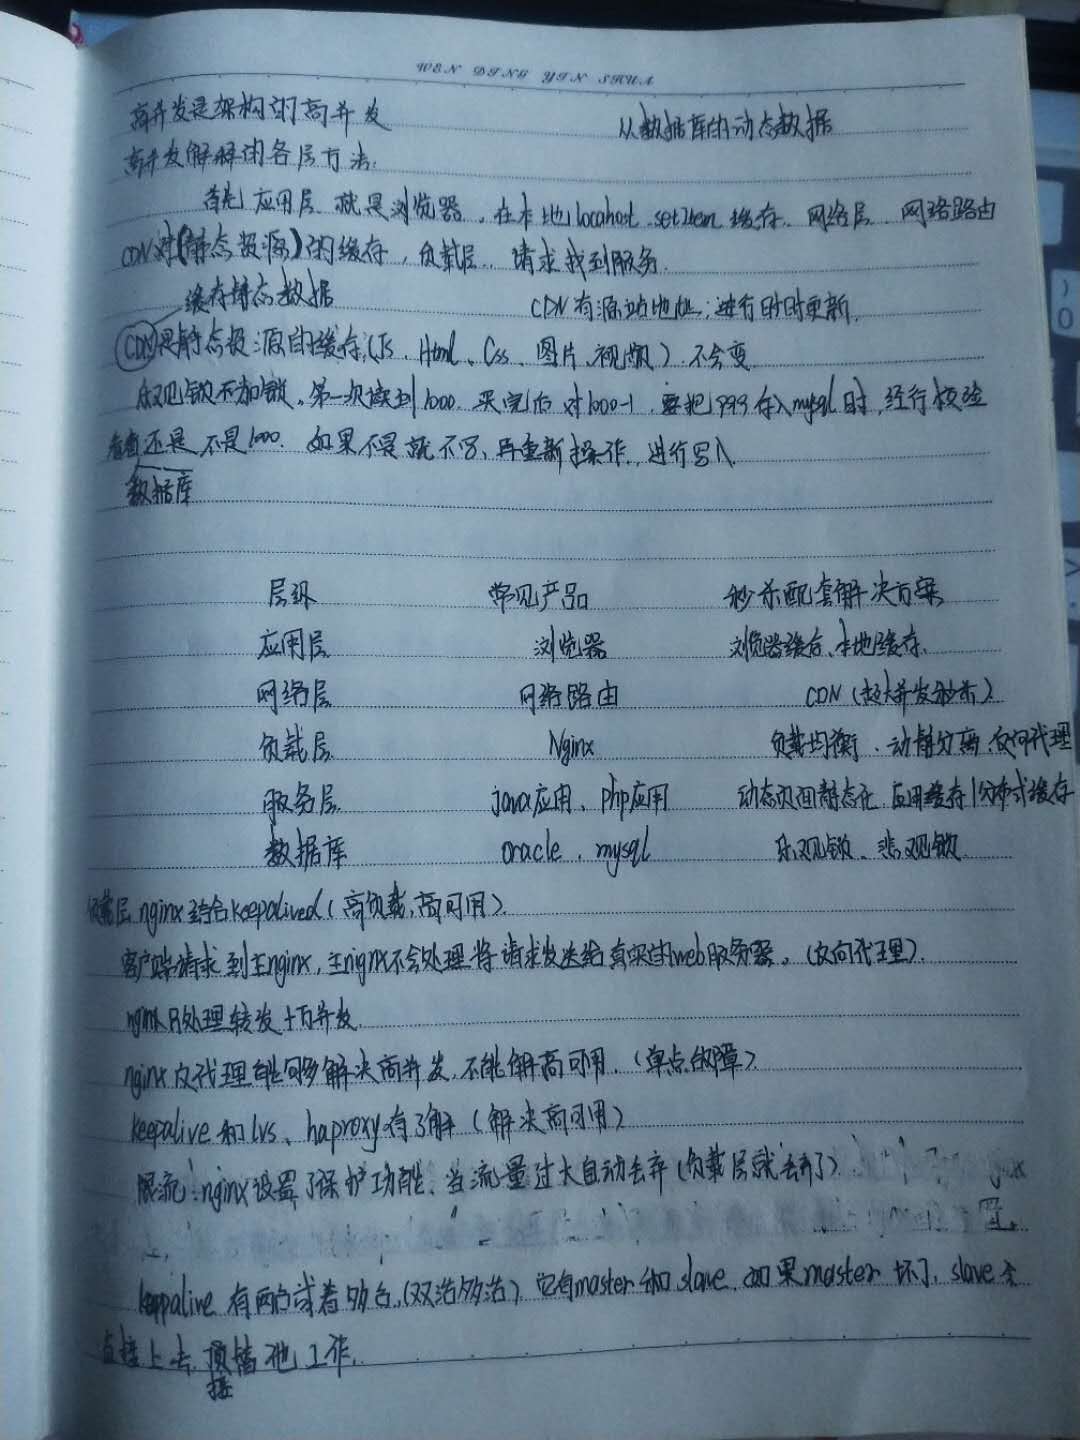 WEN DING YIN SHUA
高并发是架构的高并发
从数据库的动态数据
高并发解释的各层方法:
首先应用层 就是浏览器,在本地locahost setItem 缓存. 网络层 网络路由
CDN对(静态资源)的缓存,负载层. 请求找到服务.
缓存静态数据
CDN有源站地址;进行时时更新.
CDN是静态资源的缓存,(Js、Html、Css、图片、视频) 不会变
乐观锁不加锁。第一次读到1000. 买完后 对1000-1 . 要把999存入mysql时,经行校验
看看还是不是1000. 如果不是就不写,再重新操作,进行写入.
数据库
层级 常见产品 秒杀配套解决方案
应用层 浏览器 浏览器缓存、本地缓存.
网络层 网络路由 CDN(超大并发秒杀)
负载层 Nginx 负载均衡、动静分离 反向代理
服务层 java应用、php应用 动态页面静态化 应用缓存 分布式缓存
数据库 oracle、mysql 乐观锁、悲观锁
负载层 nginx结合keepalived(高负载,高可用)
客户端请求到主nginx,主nignx不会处理将请求发送给真实的web服务器。(反向代理).
nginx只处理转发十万并发.
nginx反代理能够解决高并发,不能解高可用.(单点故障)
keepalive和lvs、haproxy有了解(解决高可用)
限流:nginx设置了保护功能、当流量过大自动丢弃(负载层就丢弃了)
置。
keppalive 有两台或者多台,(双活多活)它有master和slave,如果master 坏了,slave会
直接上去.顶替他工作.
接